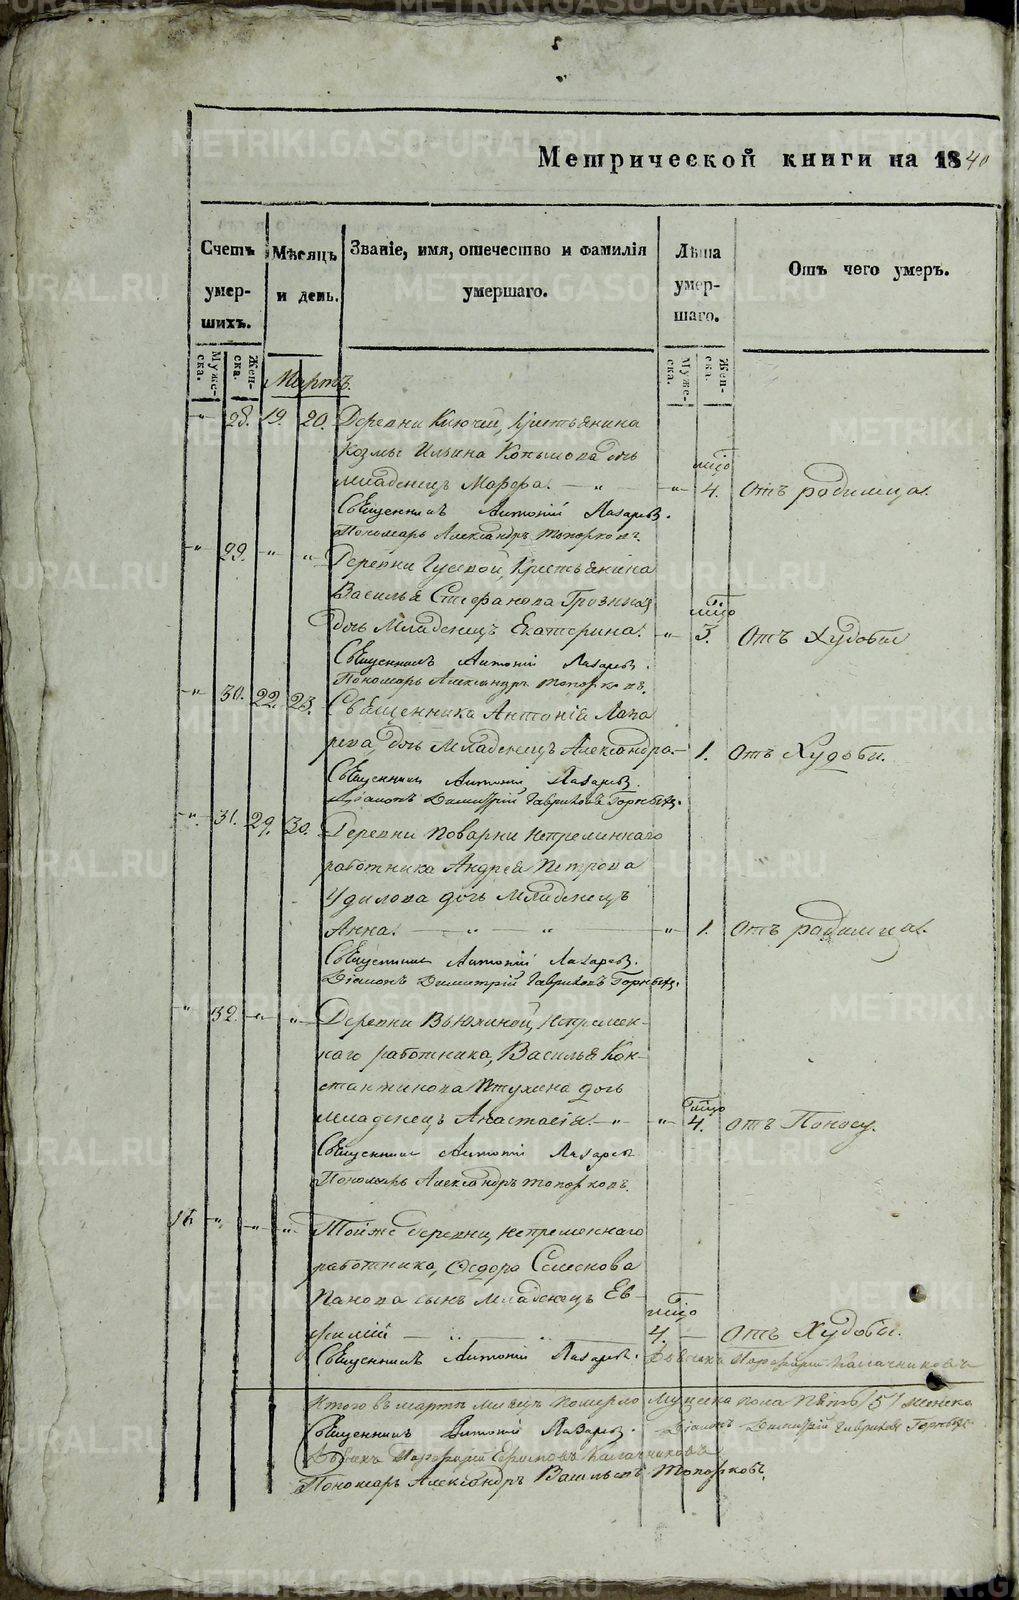 METRIKI.GASO-URAL.RU
Метрической книги на 1840
Счетъ умер-шихъ.
Муже-ска.
Жен-ска.
Мѣсяцъ и день.
Званіе, имя, отечество и фамилія умершаго.
Лѣта умер-шаго.
Муже-ска.
Жен-ска.
Отъ чего умеръ.
Мартъ.
28. 19. 20. Деревни Ключей, Крестьянина
Козмы Ильина Копылова дочь
младенецъ Марфа. 4. Отъ родимца.
Священникъ Антоній Лазаревъ.
Пономарь Александръ Топорковъ.
29. Деревни Гусевой, Крестьянина
Василья Стефанова Грозныхъ
дочь Младенецъ Екатерина. 3. Отъ Худобы
Священникъ Антоній Лазаревъ.
Пономарь Александръ Топорковъ.
30. 22. 23. Священника Антонія Лаза
рева, дочь Младенецъ Александра 1. Отъ Худобы.
Священникъ Антоній Лазаревъ
Діаконъ Димитрій Гавриловъ
31. 29. 30. Деревни Поварни непременнаго
работника Андрея Петрова
Удилова дочь Младенецъ
Анна. 1. Отъ родимца.
Священникъ Антоній Лазаревъ.
Діаконъ Димитрій Гавриловъ
32. Деревни Вьюхиной, непремен-
наго работника, Василья Кон-
стантинова Птухина дочь
младенецъ Анастасія. 4. Отъ Поносу.
Священникъ Антоній Лазаревъ
Пономарь Александръ Топорковъ.
Тойже деревни, непременнаго
работника, Федора Семенова
Панова сынъ Младенецъ Ев-
фимій 4. Отъ Худобы.
Священникъ Антоній Лазаревъ. Дьячекъ Порфирий Калачниковъ
Итого въ мартѣ месяцѣ померло Мужеска пола пять /5/ женска
Священникъ Антоній Лазаревъ. Діаконъ Димитрій Гавриловъ
Дьячекъ Порфирій Калачниковъ
Пономарь Александръ Васильевъ Топорковъ.